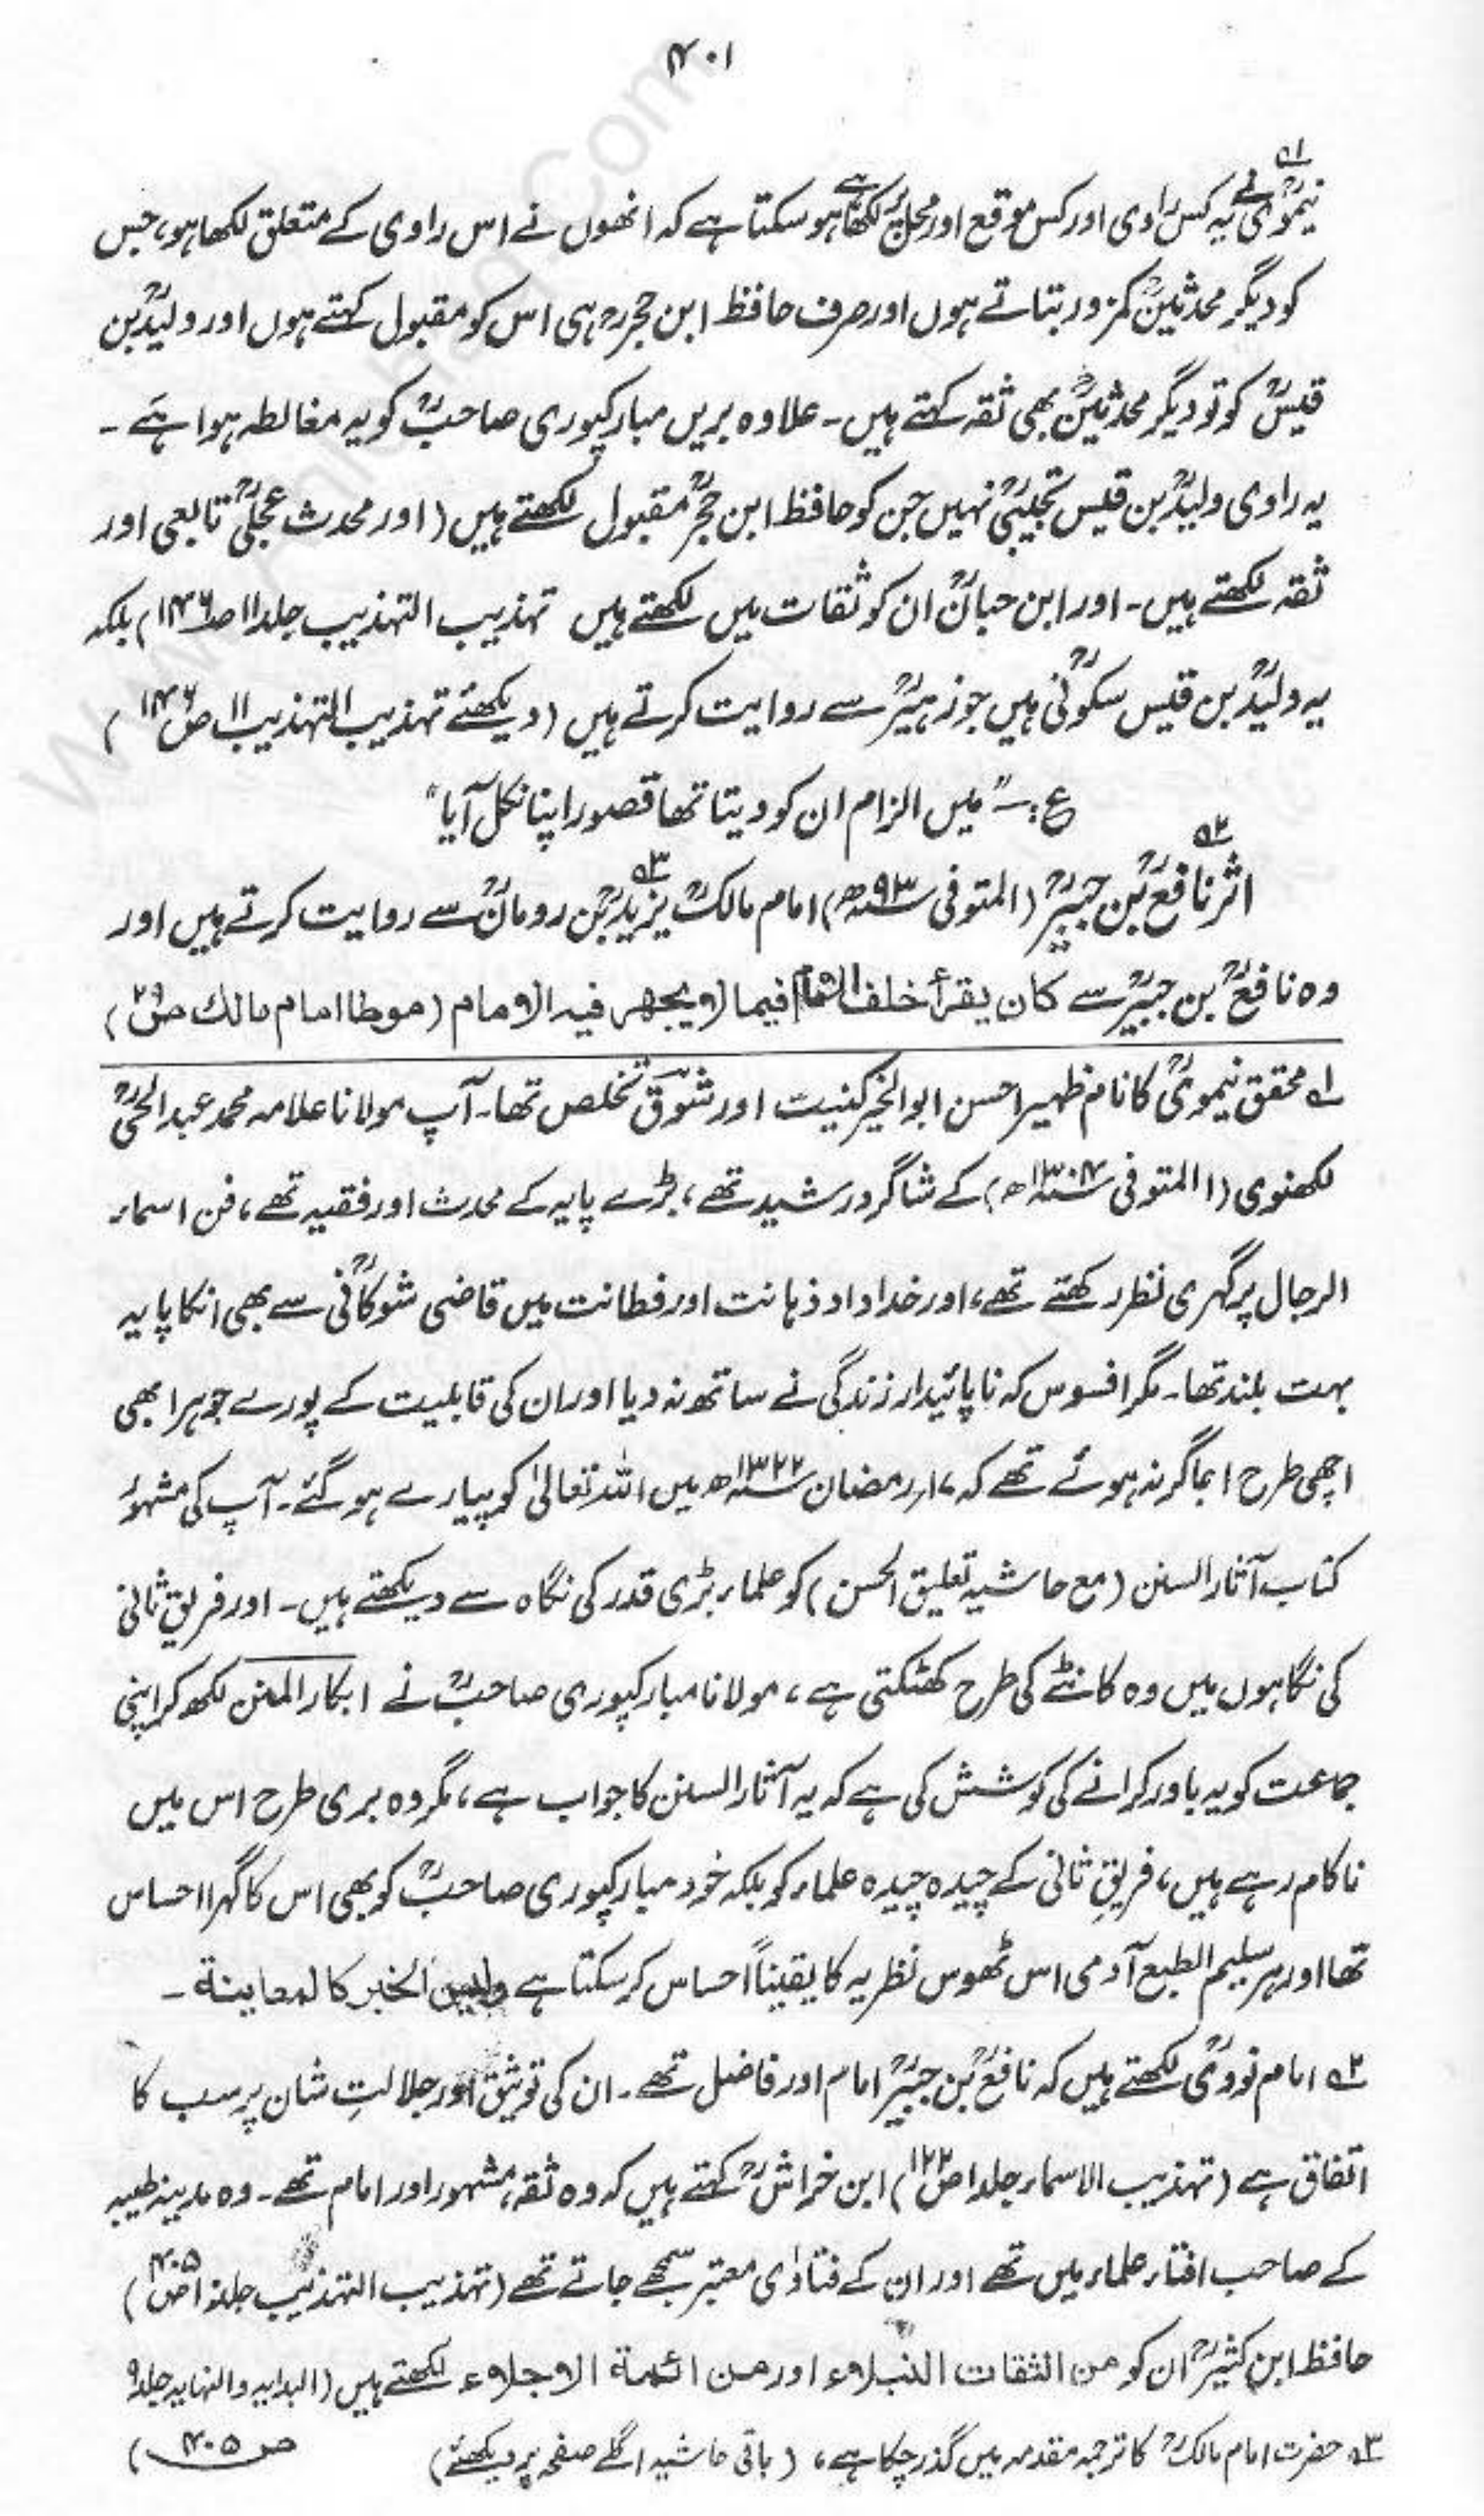 ۴۰۱
نیمویؒ نے۱ یہ کس راوی اور کس موقع اور محل پر لکھا ہے ہوسکتا ہے کہ انھوں نے اس راوی کے متعلق لکھا ہو، جس
کو دیگر محدثینؒ کمزور بتاتے ہوں اور صرف حافظ ابن حجرؒ ہی اس کو مقبول کہتے ہوں اور ولیدؒ بن
قیسؒ کو تو دیگر محدثینؒ بھی ثقہ کہتے ہیں۔ علاوہ بریں مبارکپوری صاحبؒ کو یہ مغالطہ ہوا ہے۔
یہ راوی ولیدؒ بن قیس تجیبیؒ نہیں جن کو حافظ ابن حجرؒ مقبول لکھتے ہیں (اور محدث عجلیؒ تابعی اور
ثقہ لکھتے ہیں۔ اور ابن حبانؒ ان کو ثقات میں لکھتے ہیں تہذیب التہذیب جلد ۱۱ ص ۱۴۶) بلکہ
یہ ولیدؒ بن قیس سکونیؒ ہیں جو زہیرؒ سے روایت کرتے ہیں (دیکھئے تہذیب التہذیب ۱۱ ص ۱۴۶)
ع:۔ "میں الزام ان کو دیتا تھا قصور اپنا نکل آیا"
اثر نافعؒ بن جبیرؒ۲ (المتوفی ۹۳ھ) امام مالکؒ۳ یزیدؒ بن رومانؒ سے روایت کرتے ہیں اور
وہ نافعؒ بن جبیرؒ سے کان یقرأ خلف الامام فیما لا یجھر فیہ الامام (موطا امام مالک ص ۲۹)
۱؎ محقق نیمویؒ کا نام ظہیر احسن ابوالخیر کنیت اور شوقؔ تخلص تھا۔ آپ مولانا علامہ محمد عبدالحیؒ
لکھنوی (المتوفی ۱۳۰۴ھ) کے شاگرد رشید تھے، بڑے پایہ کے محدث اور فقیہ تھے، فن اسماء
الرجال پر گہری نظر رکھتے تھے، اور خداداد ذہانت اور فطانت میں قاضی شوکانیؒ سے بھی انکا پایہ
بہت بلند تھا۔ مگر افسوس کہ ناپائیدار زندگی نے ساتھ نہ دیا اور ان کی قابلیت کے پورے جوہر ابھی
اچھی طرح اجاگر نہ ہوئے تھے کہ ۱۷ رمضان ۱۳۲۲ھ میں اللہ تعالیٰ کو پیارے ہوگئے۔ آپ کی مشہور
کتاب آثار السنن (مع حاشیہ تعلیق الحسن) کو علماء بڑی قدر کی نگاہ سے دیکھتے ہیں۔ اور فریق ثانی
کی نگاہوں میں وہ کانٹے کی طرح کھٹکتی ہے، مولانا مبارکپوری صاحبؒ نے ابکار المنن لکھ کر اپنی
جماعت کو یہ باور کرانے کی کوشش کی ہے کہ یہ آثار السنن کا جواب ہے، مگر وہ بری طرح اس میں
ناکام رہے ہیں، فریقِ ثانی کے چیدہ چیدہ علماء کو بلکہ خود مبارکپوری صاحبؒ کو بھی اس کا گہرا احساس
تھا اور ہر سلیم الطبع آدمی اس ٹھوس نظریہ کا یقیناً احساس کرسکتا ہے ولیس الخبر کالمعاینة۔
۲؎ امام نوویؒ لکھتے ہیں کہ نافعؒ بن جبیرؒ امام اور فاضل تھے۔ ان کی توثیق اور جلالتِ شان پر سب کا
اتفاق ہے (تہذیب الاسماء جلد ۱ ص ۱۲۲) ابن خراشؒ کہتے ہیں کہ وہ ثقہ، مشہور اور امام تھے۔ وہ مدینہ طیبہ
کے صاحب افتاء علماء میں تھے اور ان کے فتاوٰی معتبر سمجھے جاتے تھے (تہذیب التہذیب جلد ۱۰ ص ۴۰۵)
حافظ ابن کثیرؒ ان کو من الثقات النبلاء اور من ائمة الاجلاء لکھتے ہیں (البدایہ والنہایہ جلد ۹
ص ۴۰۵)
۳؎ حضرت امام مالکؒ کا ترجمہ مقدمہ میں گذر چکا ہے، (باقی حاشیہ اگلے صفحہ پر دیکھئے)